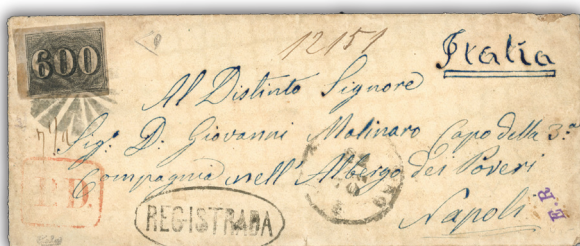 600
12151
Italia
Al Distinto Signore
Sig: D: Giovanni Molinaro Capo della 3:ª
Compagnia nell' Albergo dei Poveri
Napoli
P.D.
REGISTRADA